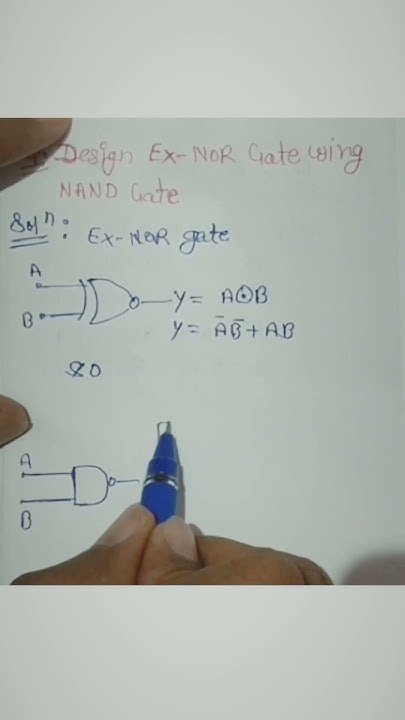 Design Ex-NOR Gate using
NAND Gate
Solⁿ:
Ex-NOR gate
A
B
Y = A⊙B
Y = A̅ B̅ + AB
SO
A
B